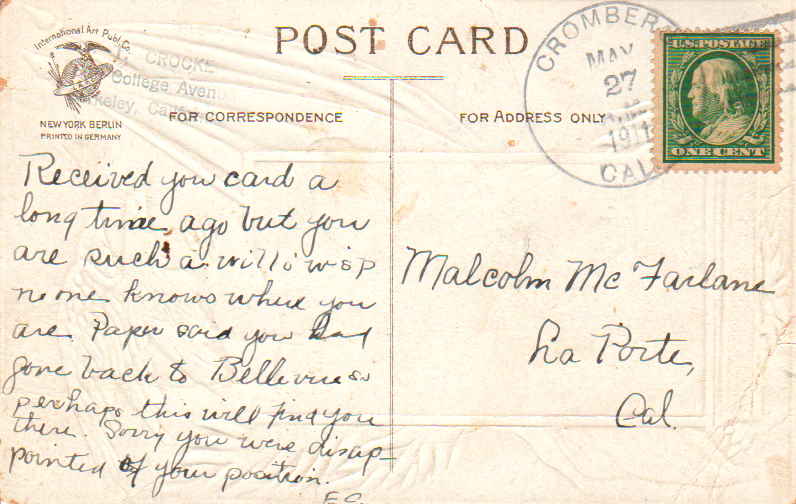 POST CARD
International Art Publ. Co.
NEW YORK BERLIN
PRINTED IN GERMANY
CROCKE
College Aven
keley, Cal
FOR CORRESPONDENCE
FOR ADDRESS ONLY
CROMBER
MAY
27
1911
CAL
U.S. POSTAGE
ONE CENT
Received you card a
long time ago but you
are such a will o' wisp
no one knows where you
are. Paper said you had
gone back to Bellevue so
perhaps this will find you
there. Sorry you were disap-
pointed of your position.
E.C.
Malcolm Mc Farlane
La Porte,
Cal.